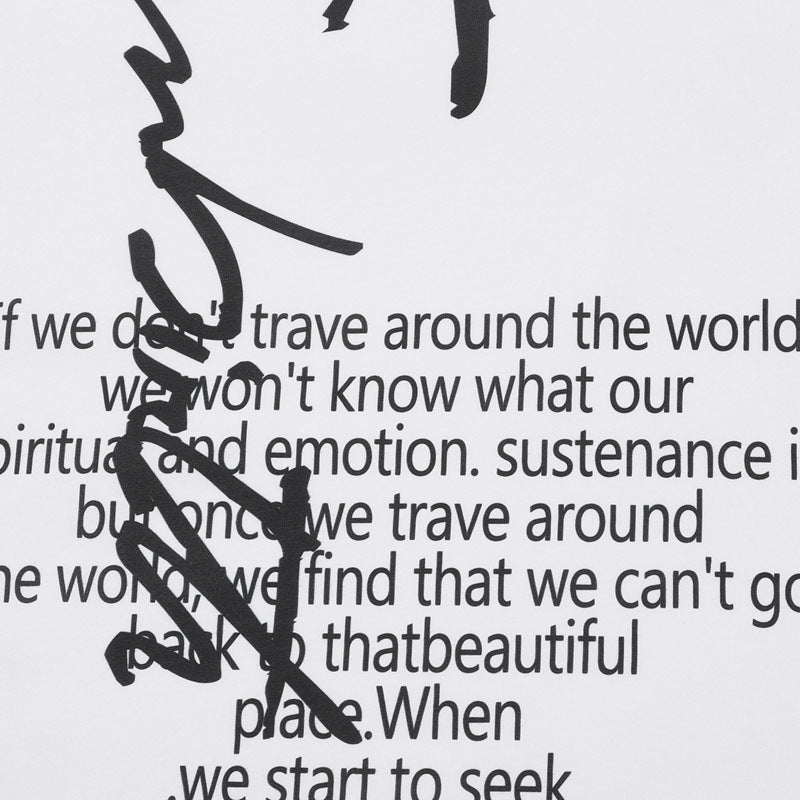 f we don't trave around the world
we won't know what our
piritual and emotion. sustenance i
but once we trave around
he world, we find that we can't go
back to thatbeautiful
place.When
.we start to seek